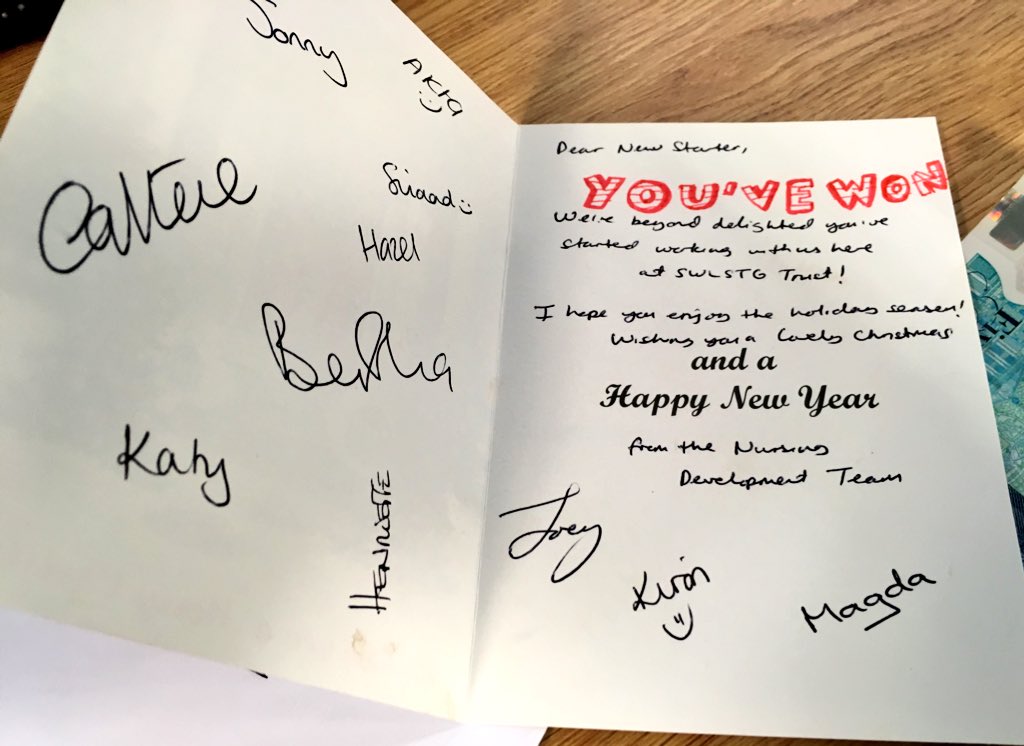 Jonny
Akta
Sinaad
Hazel
Bertha
Katy
Dear New Starter,
YOU'VE WON
We're beyond delighted you've
started working with us here
at SWLSTG Trust!
I hope you enjoy the holiday season!
Wishing you a lovely Christmas
and a
Happy New Year
from the Nursing
Development Team
Joey
Magda